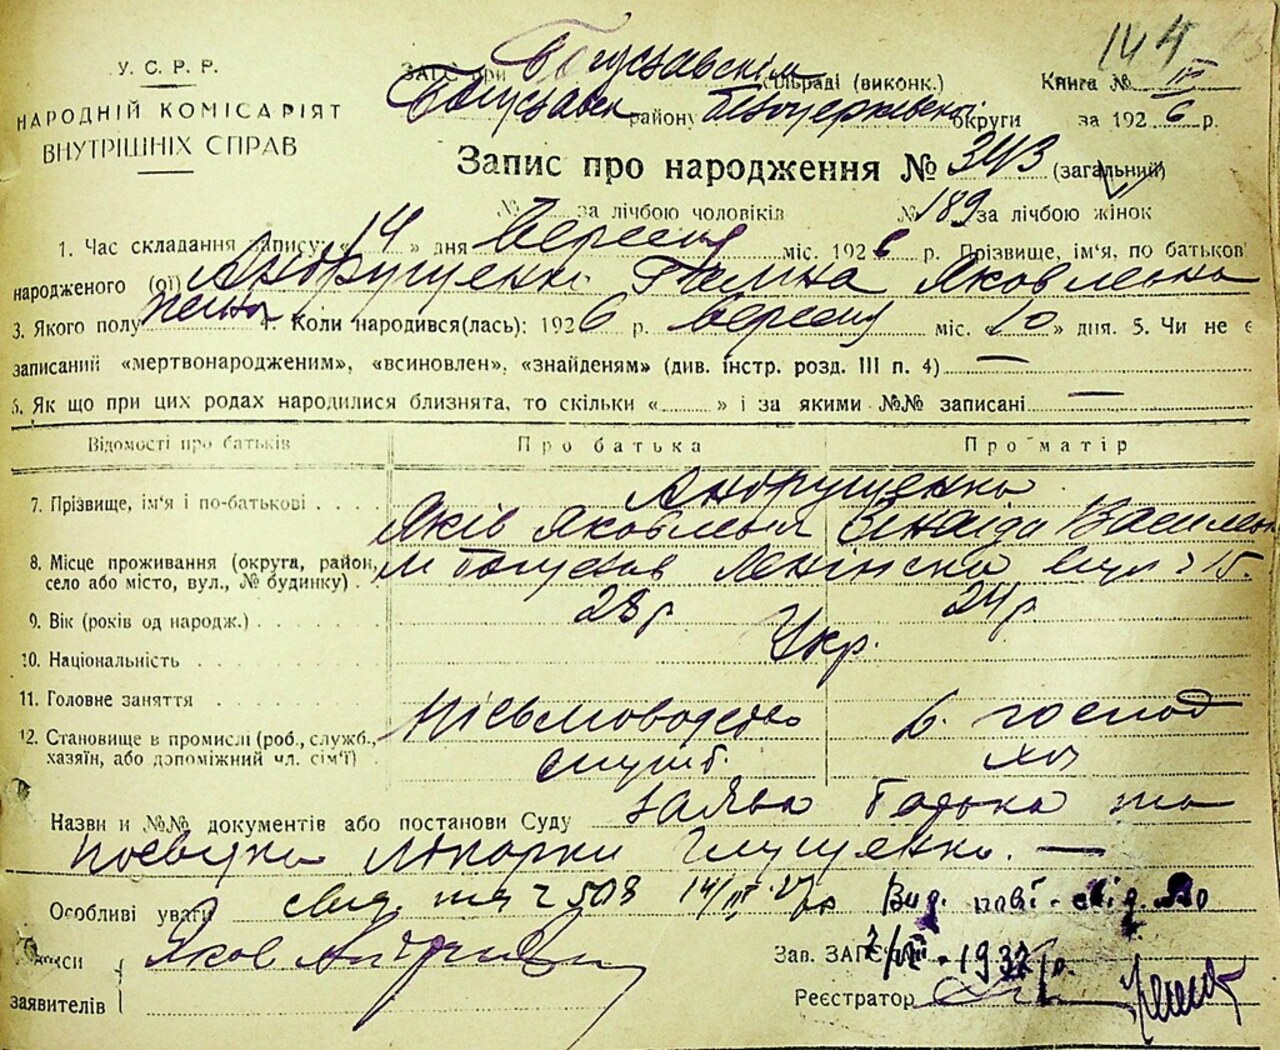 144
У. С. Р. Р.
НАРОДНІЙ КОМІСАРІЯТ
ВНУТРІШНІХ СПРАВ
ЗАГС при Богуславскім сільраді (виконк.) Книга № III
Богуславск району Білоцерківської округи за 1926 р.
Запис про народження № 343 (загальний)
№ за лічбою чоловіків № 189 за лічбою жінок
1. Час складання запису: « 14 » дня Вересня міс. 1926 р. Прізвище, ім'я, по батьков
народженого (ої) Андрущенко Галина Яковлевна
3. Якого полу жіноч 4. Коли народився(лась): 1926 р. Вересня міс. « 10 » дня. 5. Чи не є
записаний «мертвонародженим», «всиновлен», «знайденям» (див. інстр. розд. III п. 4) —
6. Як що при цих родах народилися близнята, то скільки « » і за якими №№ записані —
Відомості про батьків Про батька Про матір
7. Прізвище, ім'я і по-батькові Андрущенко
Яків Яковлевич Зінаіда Василевн
8. Місце проживання (округа, район, село або місто, вул., № будинку) м Богуслав Ленінска вул ч 15.
9. Вік (років од народж.) 28 р 24 р.
10. Національність Укр.
11. Головне заняття Письмоводство д. господ
12. Становище в промислі (роб., служб., хазяїн, або допоміжний чл. сім'ї) служб.
Назви и №№ документів або постанови Суду заява батька та
посвідка лікарки Глущенко. —
Особливі уваги свид. ч 508 14/III 27 р Вид. нові свід.
Підписи заявителів Яков Андрущенко
Зав. ЗАГС 7/VII - 1937 р.
Реєстратор